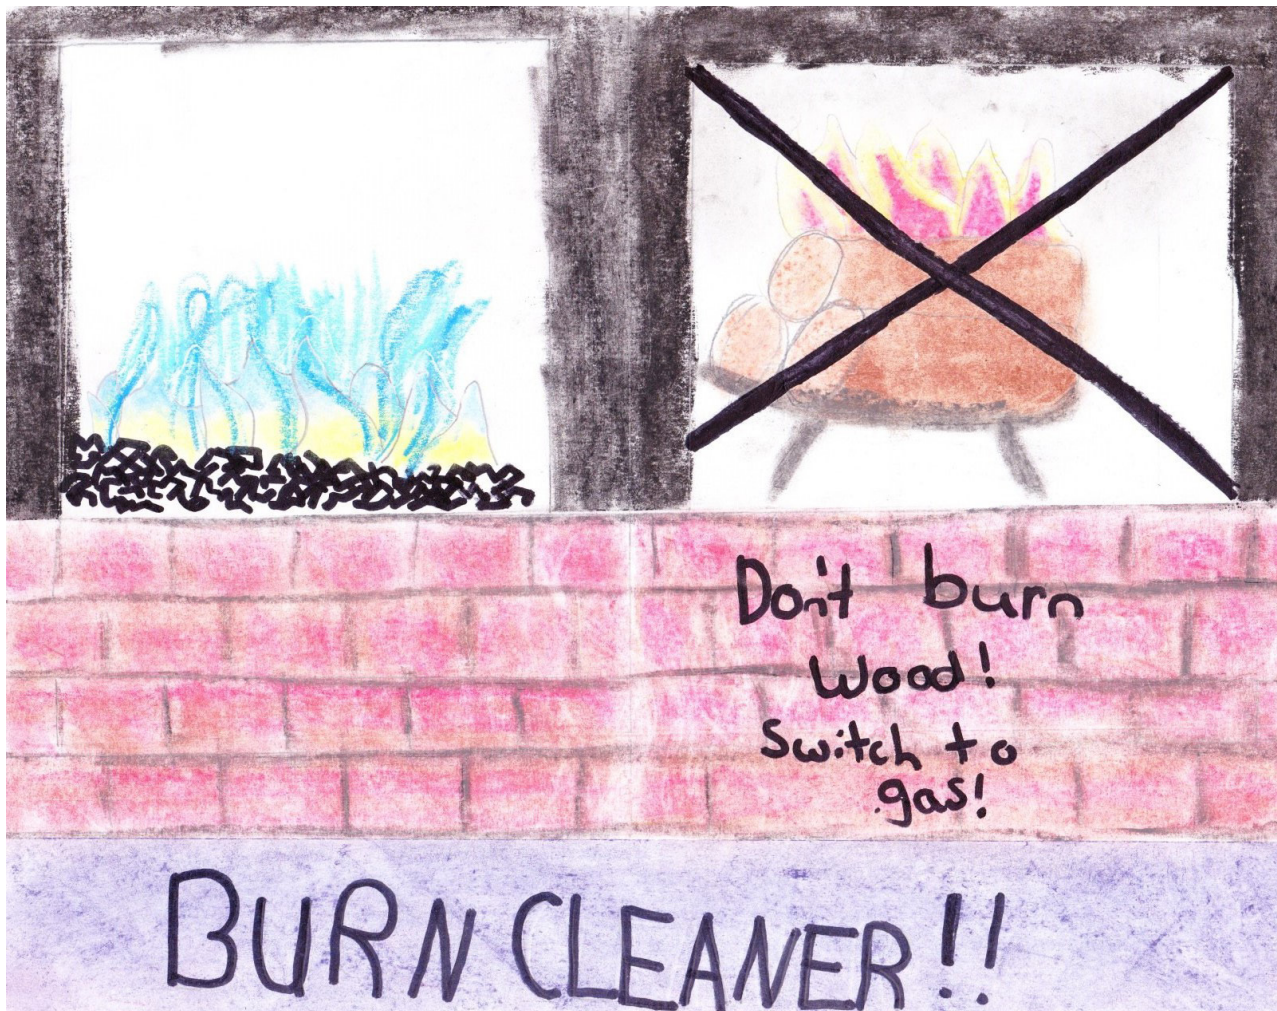 Don't burn
Wood!
Switch to
gas!
BURN CLEANER!!